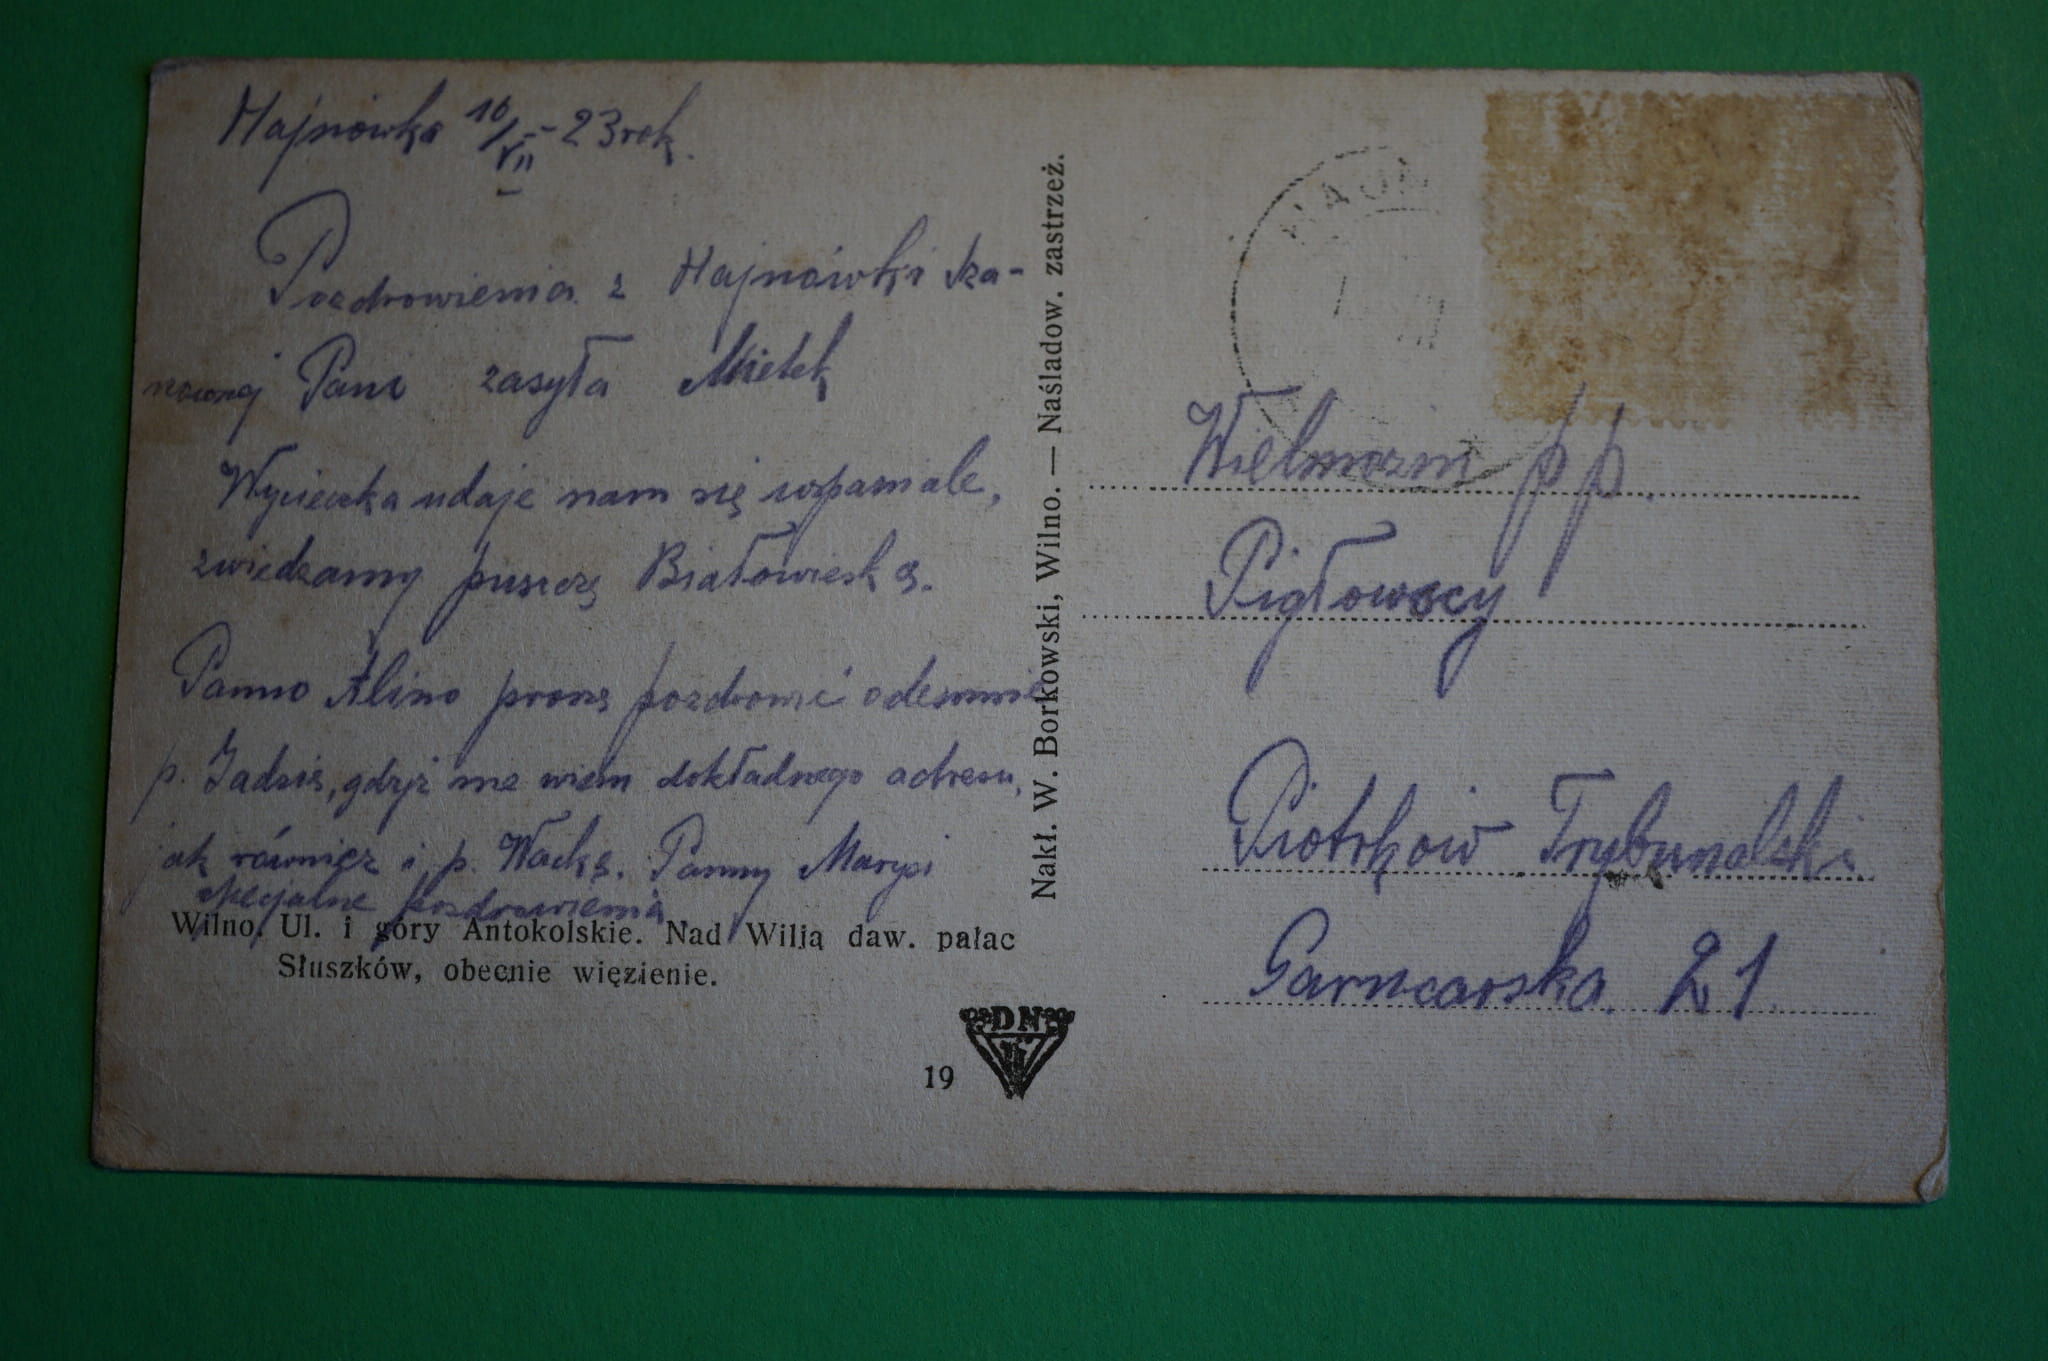 Hajnówka 10/VII - 23 rok.
Pozdrowienia z Hajnówki sza-
nownej Pani zasyła Mietek
Wycieczka udaje nam się wspaniale,
zwiedzamy puszczę Białowieską.
Panno Alino proszę pozdrowić odemnie
p. Jadzię, gdyż nie wiem dokładnego adresu,
jak również i p. Wackę. Panny Marysi
specjalne pozdrowienia
Wilno. Ul. i góry Antokolskie. Nad Wilją daw. pałac
Słuszków, obecnie więzienie.
19
DN
Nakł. W. Borkowski, Wilno. — Naśladow. zastrzeż.
Wielmożni pp.
Pigłowscy
Piotrków Trybunalski
Garncarska 21.